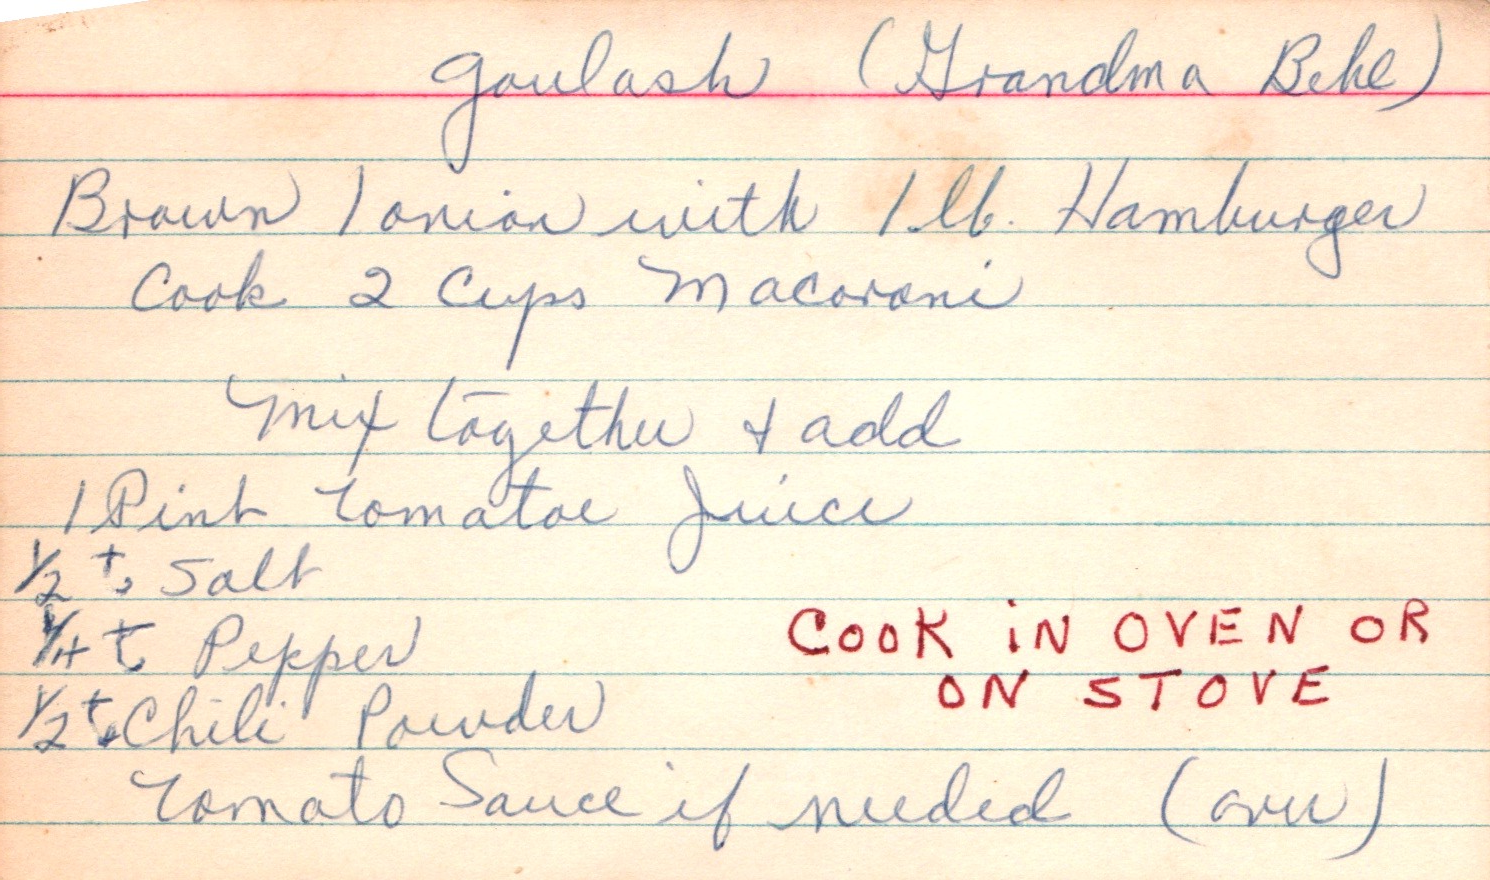 Goulash (Grandma Behl)
Brown 1 onion with 1 lb. Hamburger
Cook 2 Cups Macoroni
Mix together + add
1 Pint Tomatoe Juice
1/2 t. Salt
1/4 t. Pepper
COOK IN OVEN OR
ON STOVE
1/2 t. Chili Powder
Tomato Sauce if needed (over)